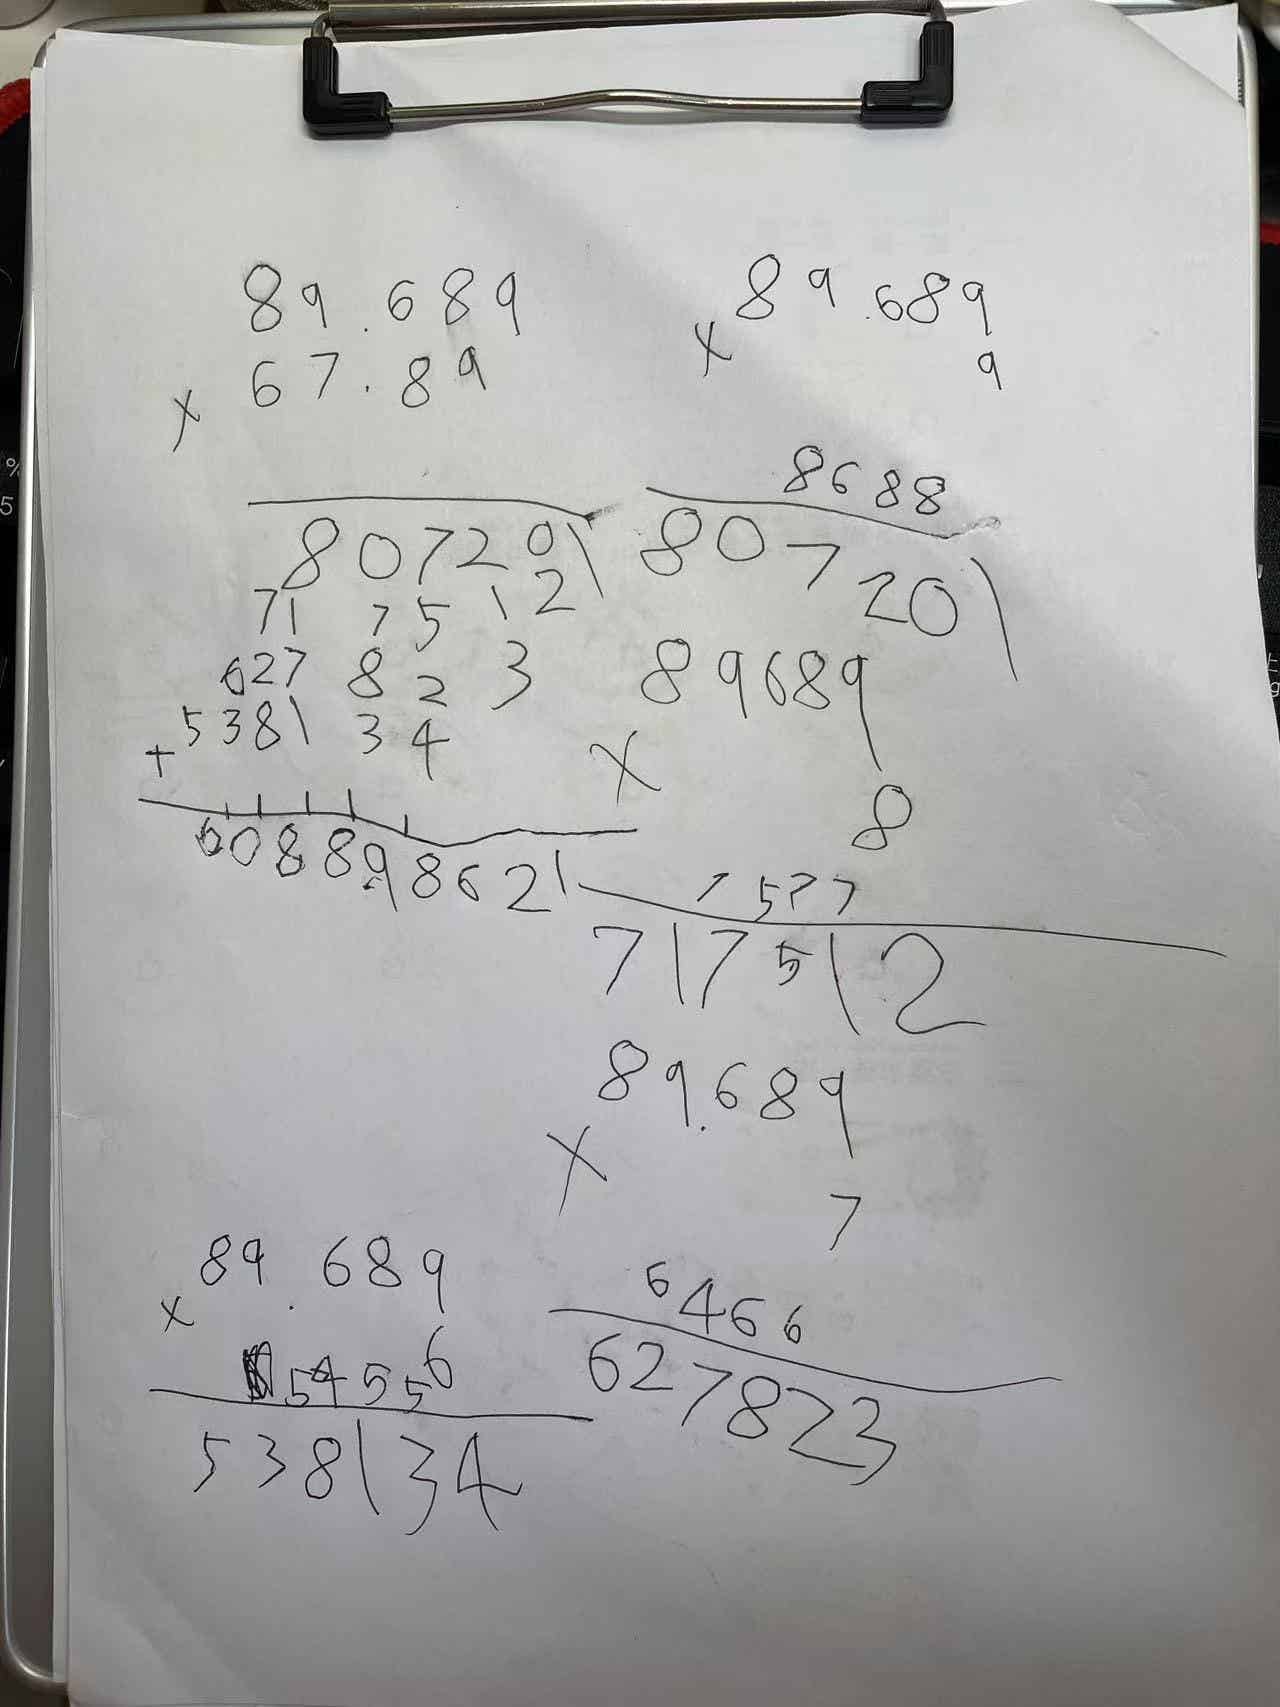 89.689
× 67.89
807201
717512
627823
+ 538134
608898621
89.689
× 9
8688
807201
89689
× 8
7577
717512
89.689
× 7
6466
627823
89.689
× 6
5455
538134